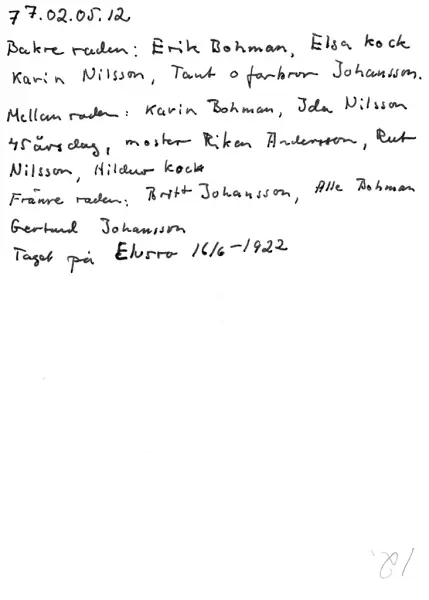 77.02.05.12
Bakre raden: Erik Bohman, Elsa Kock
Karin Nilsson, Tant o farbror Johansson.
Mellan raden: Karin Bohman, Ida Nilsson
45 årsdag, moster Riken Andersson, Rut
Nilsson, Hildur Kock
Främre raden: Britt Johansson, Alle Bohman
Gertrud Johansson
Taget på Elvsro 16/6-1922